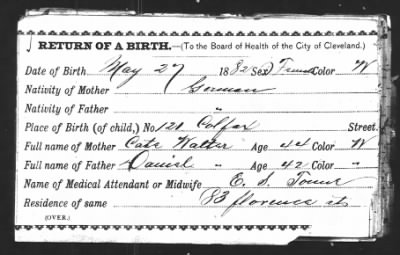 RETURN OF A BIRTH.—(To the Board of Health of the City of Cleveland.)
Date of Birth May 27 1882 Sex Color W
Nativity of Mother German
Nativity of Father "
Place of Birth (of child,) No. 121 Colfax Street.
Full name of Mother Cate Walter Age 44 Color W
Full name of Father Daniel " Age 42 Color "
Name of Medical Attendant or Midwife E. S.
Residence of same 83 florence st
(OVER.)